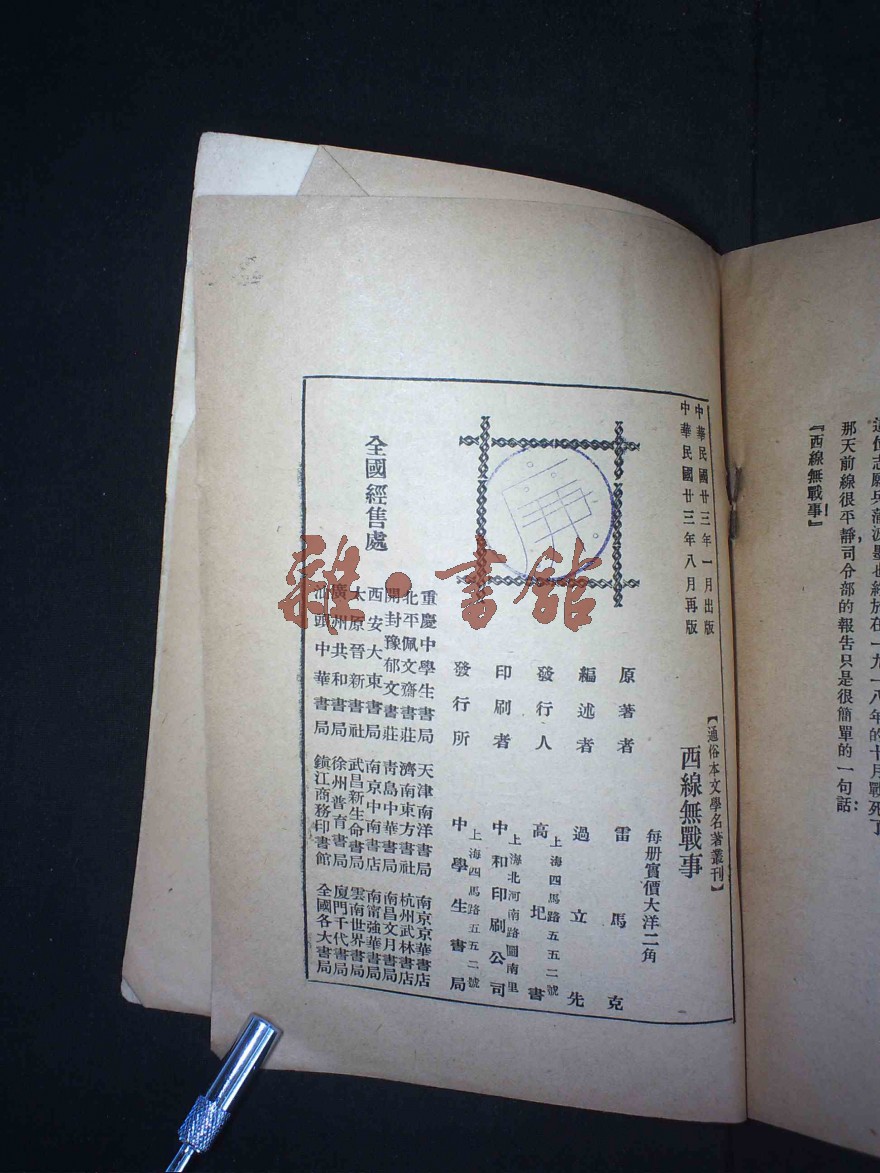 這位志願兵蒲波墨也終於在一九一八年的十月戰死了
那天前線很平靜,司令部的報告只是很簡單的一句話:
『西線無戰事』
中華民國廿三年一月出版
中華民國廿三年八月再版
【通俗本文學名著叢刊】
西線無戰事
每册實價大洋二角
原著者 雷馬克
編述者 過立先
上海四馬路五五二號
發行人 高圯書
上海北河南路圖南里
印刷者 中和印刷公司
上海四馬路五五二號
發行所 中學生書局
全國經售處
重慶中學生書局 天津南洋書局 南京京華書店
北平佩文齋書莊 濟南東方書社 杭州武林書店
開封豫郁文書莊 青島中華書局 南昌文月書局
西安大東書局 南京中南書店 南甯強華書局
太原晉新書社 武昌新生命書局 雲南世界書局
廣州共和書局 徐州普育書局 廈門千代書局
汕頭中華書局 鎮江商務印書館 全國各大書局
雜·書館